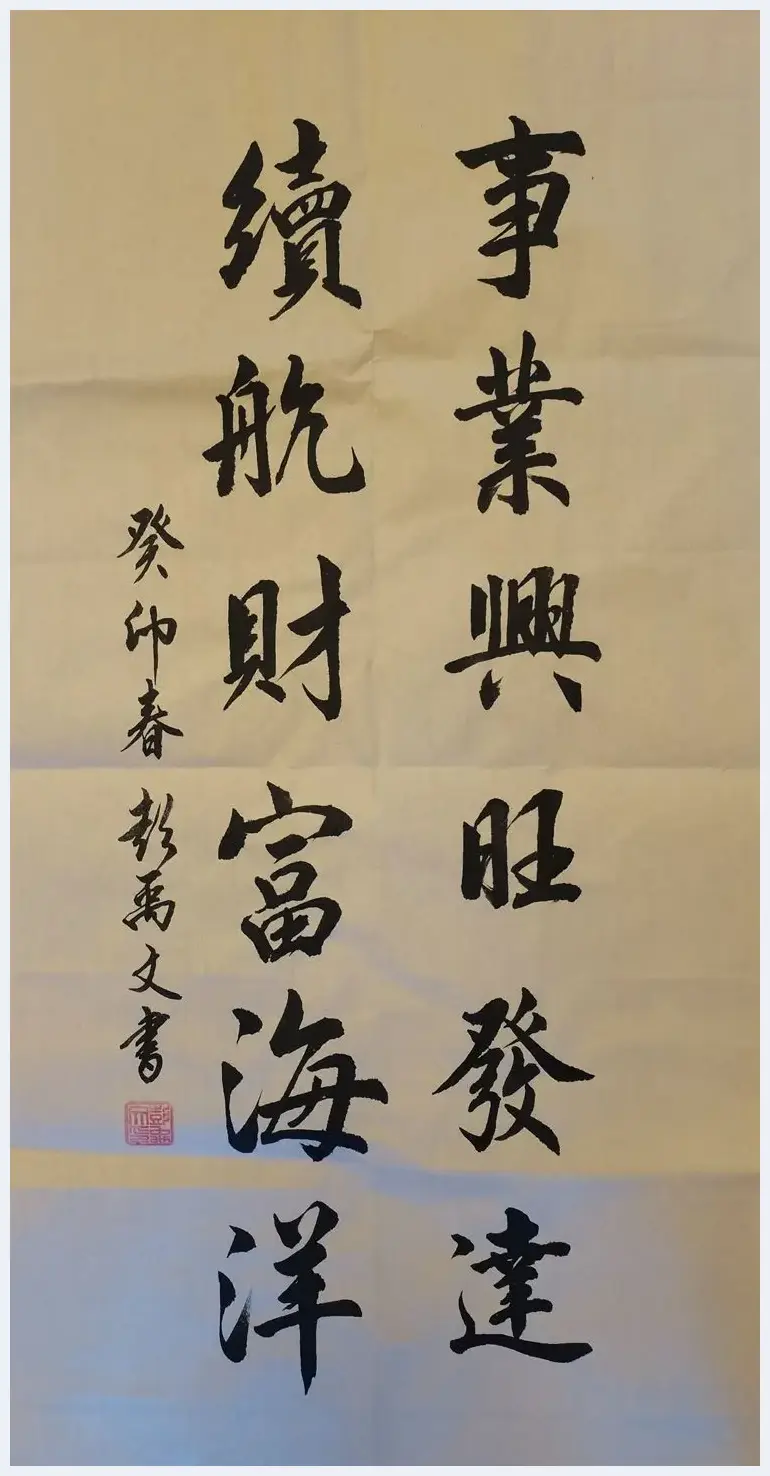 事業興旺發達
續航財富海洋
癸卯春彭禹文書